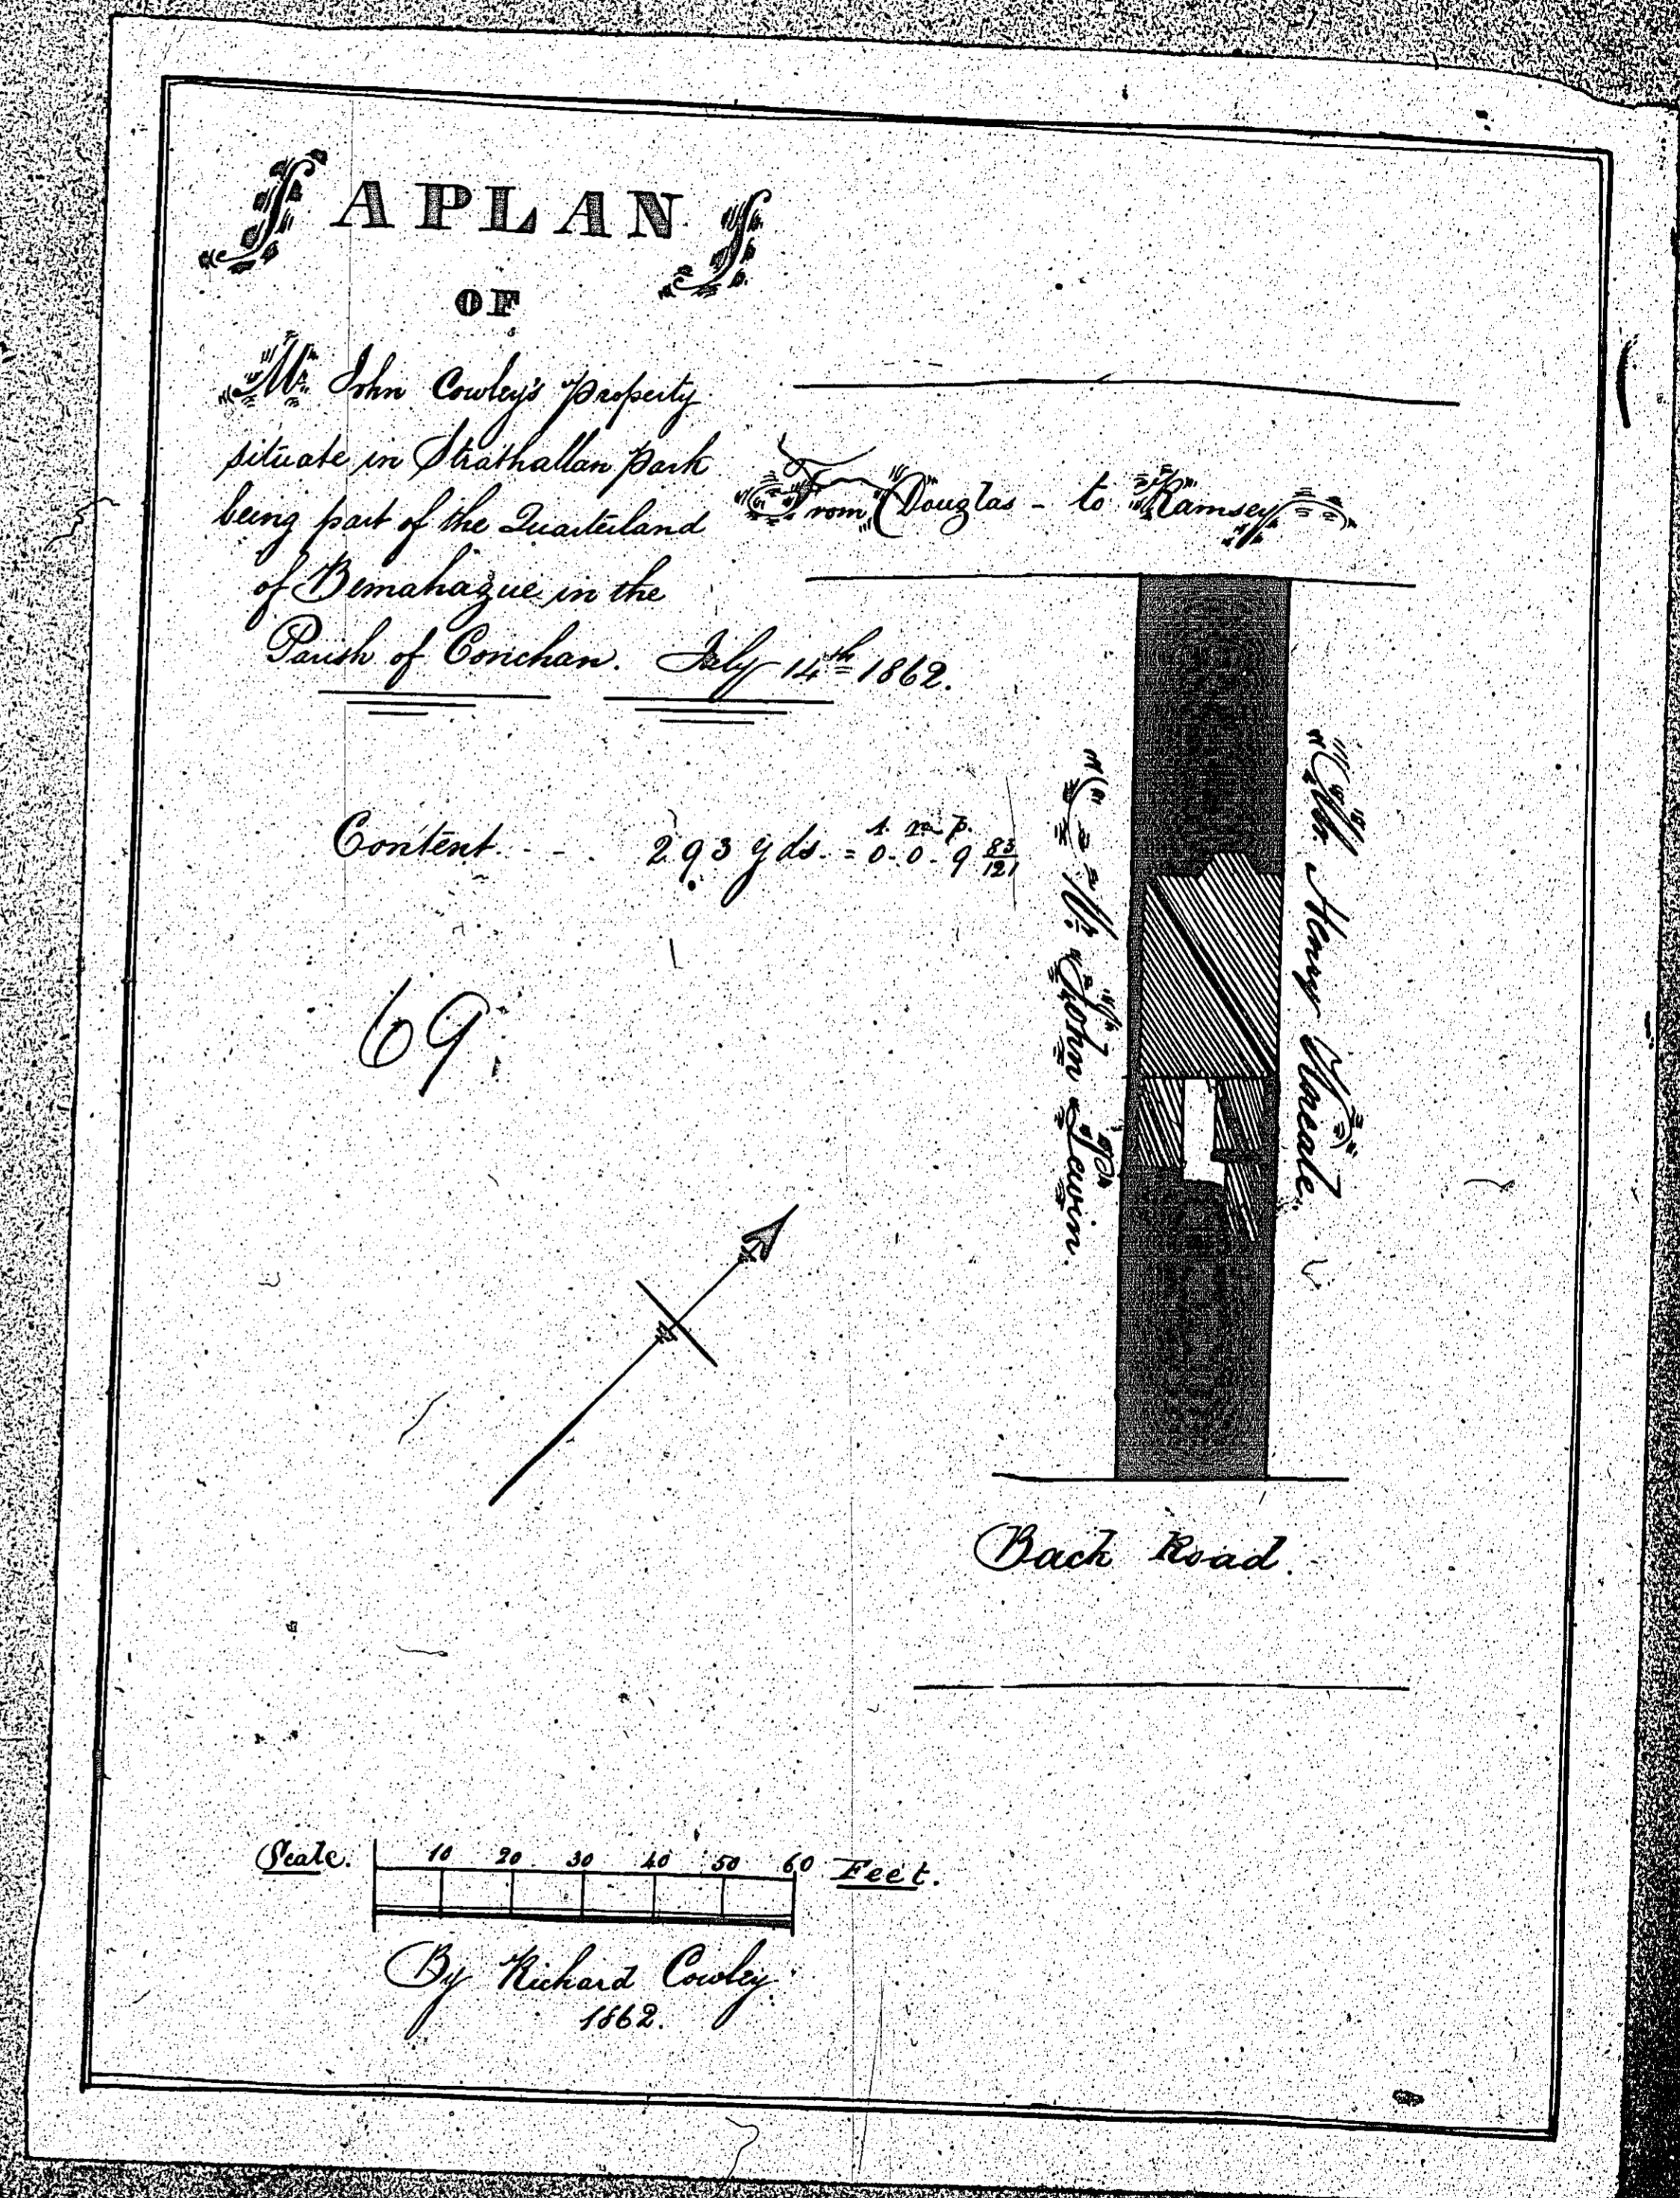 A PLAN
OF
Mr. John Cowley's Property
situate in Strathallan Park
being part of the Quarterland
of Bemahague in the
Parish of Conchan. July 14th 1862.
From Douglas - to Ramsey
Content - - . 293 yds. = 0-0-9 83/121
a. r. p.
69
Mr. John
Mr. Henry
Back Road.
Scale. 10 20 30 40 50 60 Feet.
By Richard Cowley
1862.